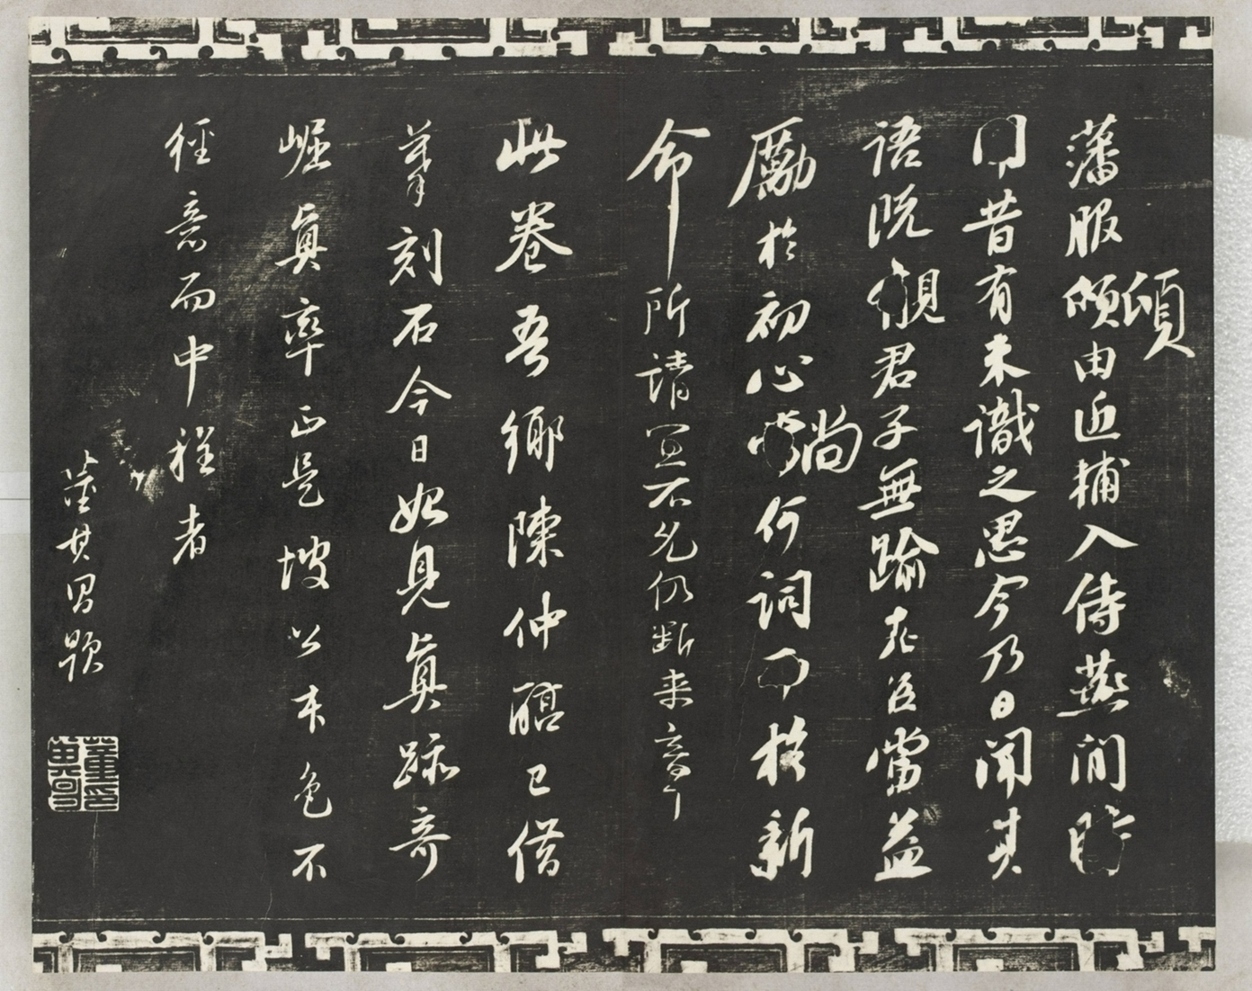 頃
藩服頃由近輔入侍燕間時
昔有未識之愚今乃日聞其
語既親君子無踰老臣當益
尚
勵於初心何詞於新
命所請宜不允仍斷來章
此卷吾鄉陳仲醇已借
摹刻石今日始見真跡奇
崛真率正是坡公本色不
經意而中程者
董其昌題